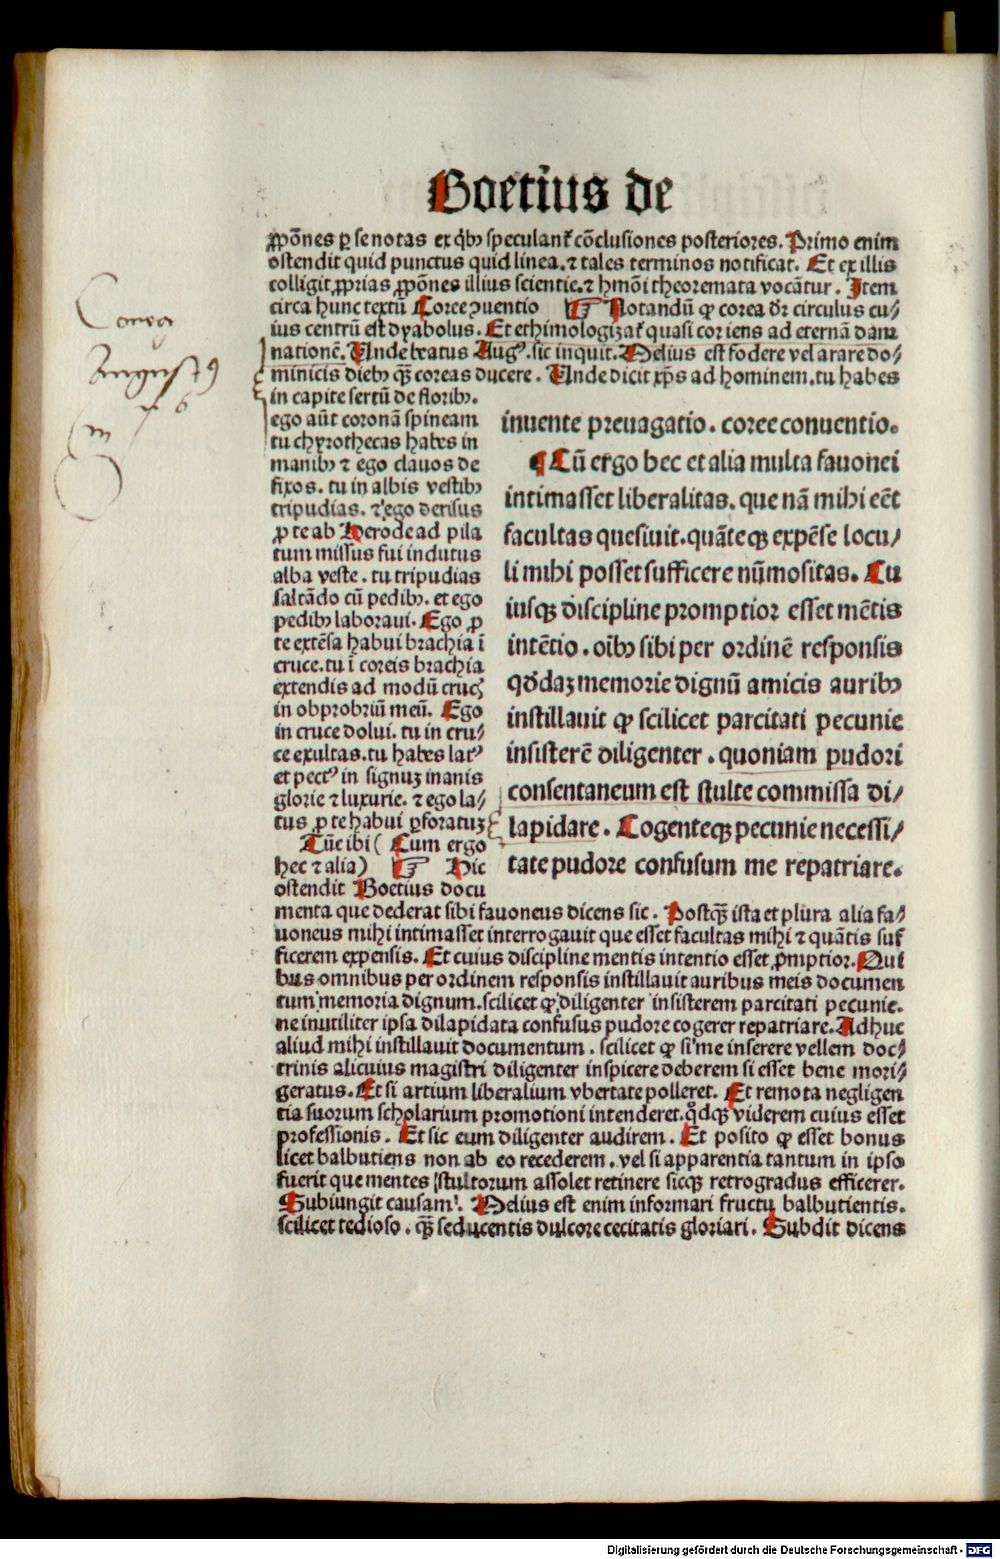 Boetius de
ꝓpōnes ꝑ se notas ex qͥbꝰ speculant᷑ cōclusiones posteriores. Primo enim
ostendit quid punctus quid linea. ⁊ tales terminos notificat. Et ex illis
colligit ꝓprias ꝓpōnes illius scientie. ⁊ hmōi theoremata vocātur. Item
circa hunc textū Coree ↄuentio ☞ Notandū ꝙ corea dr̄ circulus cu⸗
ius centrū est dyabolus. Et ethimologizat᷑ quasi cor iens ad eternā dam
nationē. Unde beatus Augꝰ. sic inquit. Melius est fodere vel arare do⸗
minicis diebꝰ qȝ̄ coreas ducere. Unde dicit xp̄s ad hominem. tu habes
in capite sertū de floribꝰ.
ego aūt coronā spineam
tu chyrothecas habes in
manibꝰ ⁊ ego clauos de
fixos. tu in albis vestibꝰ
tripudias. ⁊ ego derisus
ꝓ te ab Herode ad pila
tum missus fui indutus
alba veste. tu tripudias
saltādo cū pedibꝰ. et ego
pedibꝰ laboraui. Ego ꝓ
te extēsa habui brachia ī
cruce. tu ī coreis brachia
extendis ad modū crucꝭ
in obprobriū meū. Ego
in cruce dolui. tu in cru⸗
ce exultas. tu habes latꝰ
et pectꝰ in signuȝ inanis
glorie ⁊ luxurie. ⁊ ego la⸗
tus ꝓ te habui ꝑforatuȝ
Tūc ibi ( Cum ergo
hec ⁊ alia) ☞ Hic
ostendit Boetius docu
inuente preuagatio. coree conuentio.
¶ Cū ergo hec et alia multa fauonei
intimasset liberalitas. que nā mihi eēt
facultas quesiuit. quāteqȝ expēse locu⸗
li mihi posset sufficere nūmositas. Cu
iusqȝ discipline promptior esset mētis
intētio. oībꝰ sibi per ordinē responsis
qͦddaȝ memorie dignū amicis auribꝰ
instillauit ꝙ scilicet parcitati pecunie
insisterē diligenter. quoniam pudori
consentaneum est stulte commissa di⸗
lapidare. Cogenteqȝ pecunie necessi⸗
tate pudore confusum me repatriare.
menta que dederat sibi fauoneus dicens sic. Postqȝ̄ ista et plura alia fa⸗
uoneus mihi intimasset interrogauit que esset facultas mihi ⁊ quātis suf
ficerem expensis. Et cuius discipline mentis intentio esset ꝓmptior. Qui
bus omnibus per ordinem responsis instillauit auribus meis documen
tum memoria dignum. scilicet ꝙ diligenter insisterem parcitati pecunie.
ne inutiliter ipsa dilapidata confusus pudore cogerer repatriare. Adhuc
aliud mihi instillauit documentum. scilicet ꝙ si me inserere vellem doc⸗
trinis alicuius magistri diligenter inspicere deberem si esset bene mori⸗
geratus. Et si artium liberalium vbertate polleret. Et remota negligen
tia suorum scholarium promotioni intenderet. qͦdqȝ viderem cuius esset
professionis. Et sic eum diligenter audirem. Et posito ꝙ esset bonus
licet balbutiens non ab eo recederem. vel si apparentia tantum in ipso
fuerit que mentes stultorum assolet retinere sicqȝ retrogradus efficerer.
Subiungit causam. Melius est enim informari fructu balbutientis.
scilicet tedioso. qȝ̄ seducentis dulcore cecitatis gloriari. Subdit dicens
Corea
Augustꝰ
Digitalisierung gefördert durch die Deutsche Forschungsgemeinschaft - DFG